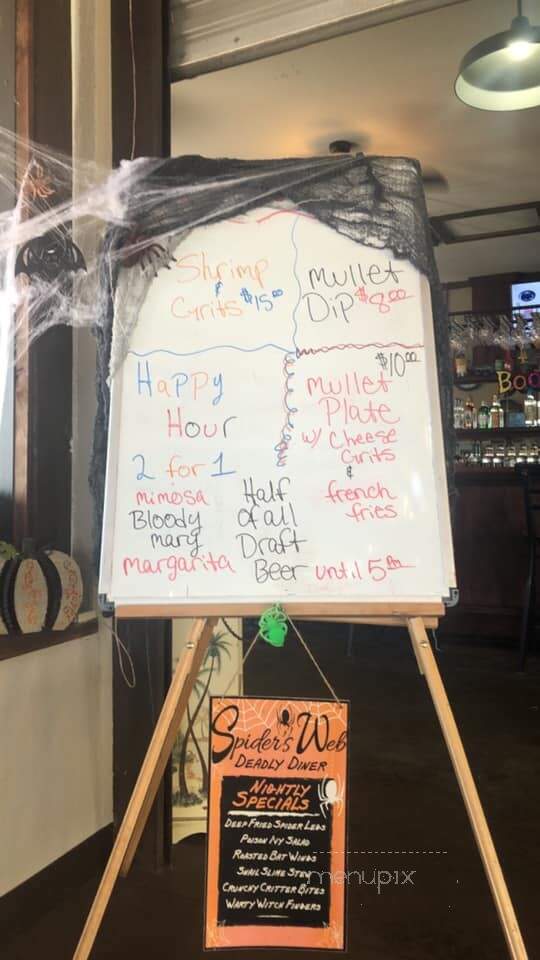 Shrimp
&
Grits $15.00
Mullet
Dip $8.00
Happy
Hour
2 for 1
mimosa
Bloody
mary
margarita
Half
Of all
Draft
Beer until 5 pm
$10.00
Mullet
Plate
w/ Cheese
Grits
&
french
fries
Boo
Spider's Web
Deadly Diner
Nightly
Specials
Deep Fried Spider Legs
Poison Ivy Salad
Roasted Bat Wings
Snail Slime Stew
Crunchy Critter Bites
Warty Witch Fingers
menupix